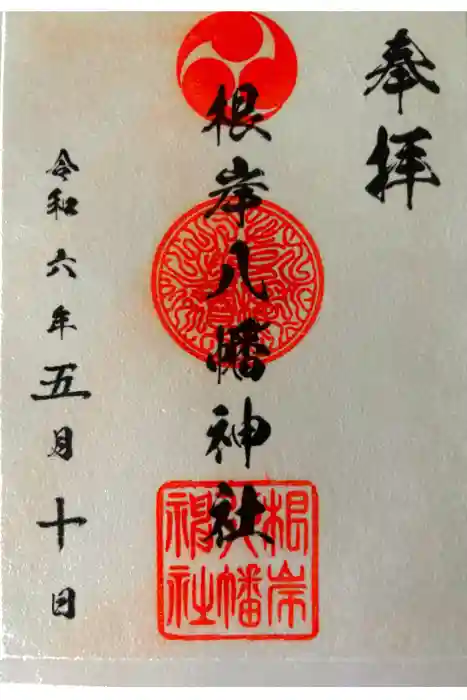 奉拝
根岸八幡神社
令和六年五月十日
根岸
八幡
神社